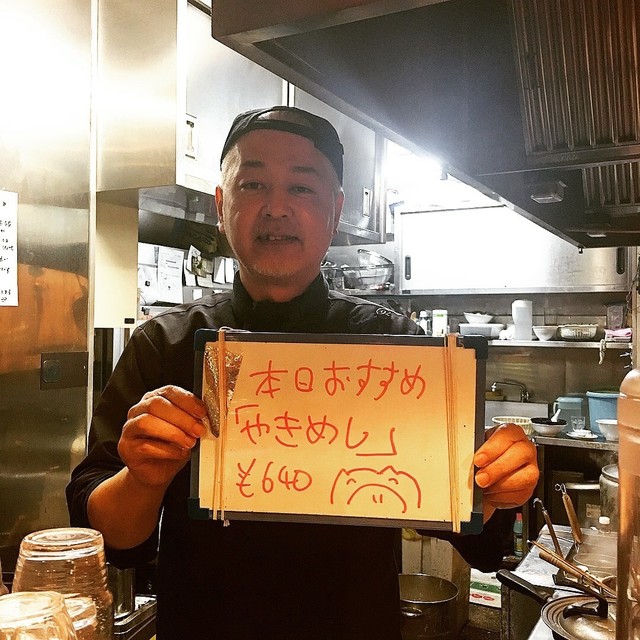 本日おすすめ
「やきめし」
¥640